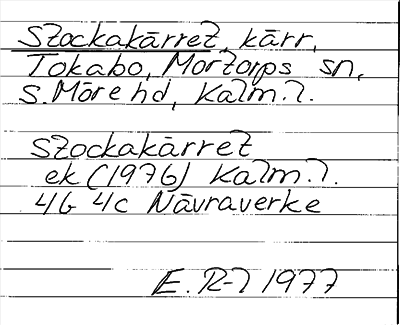 Stockakärret, kärr,
Tokabo, Mortorps sn,
S. Möre hd, Kalm. l.
Stockakärret
ek (1976) Kalm. l.
4G 4c Nävraverke
E. R-l 1977